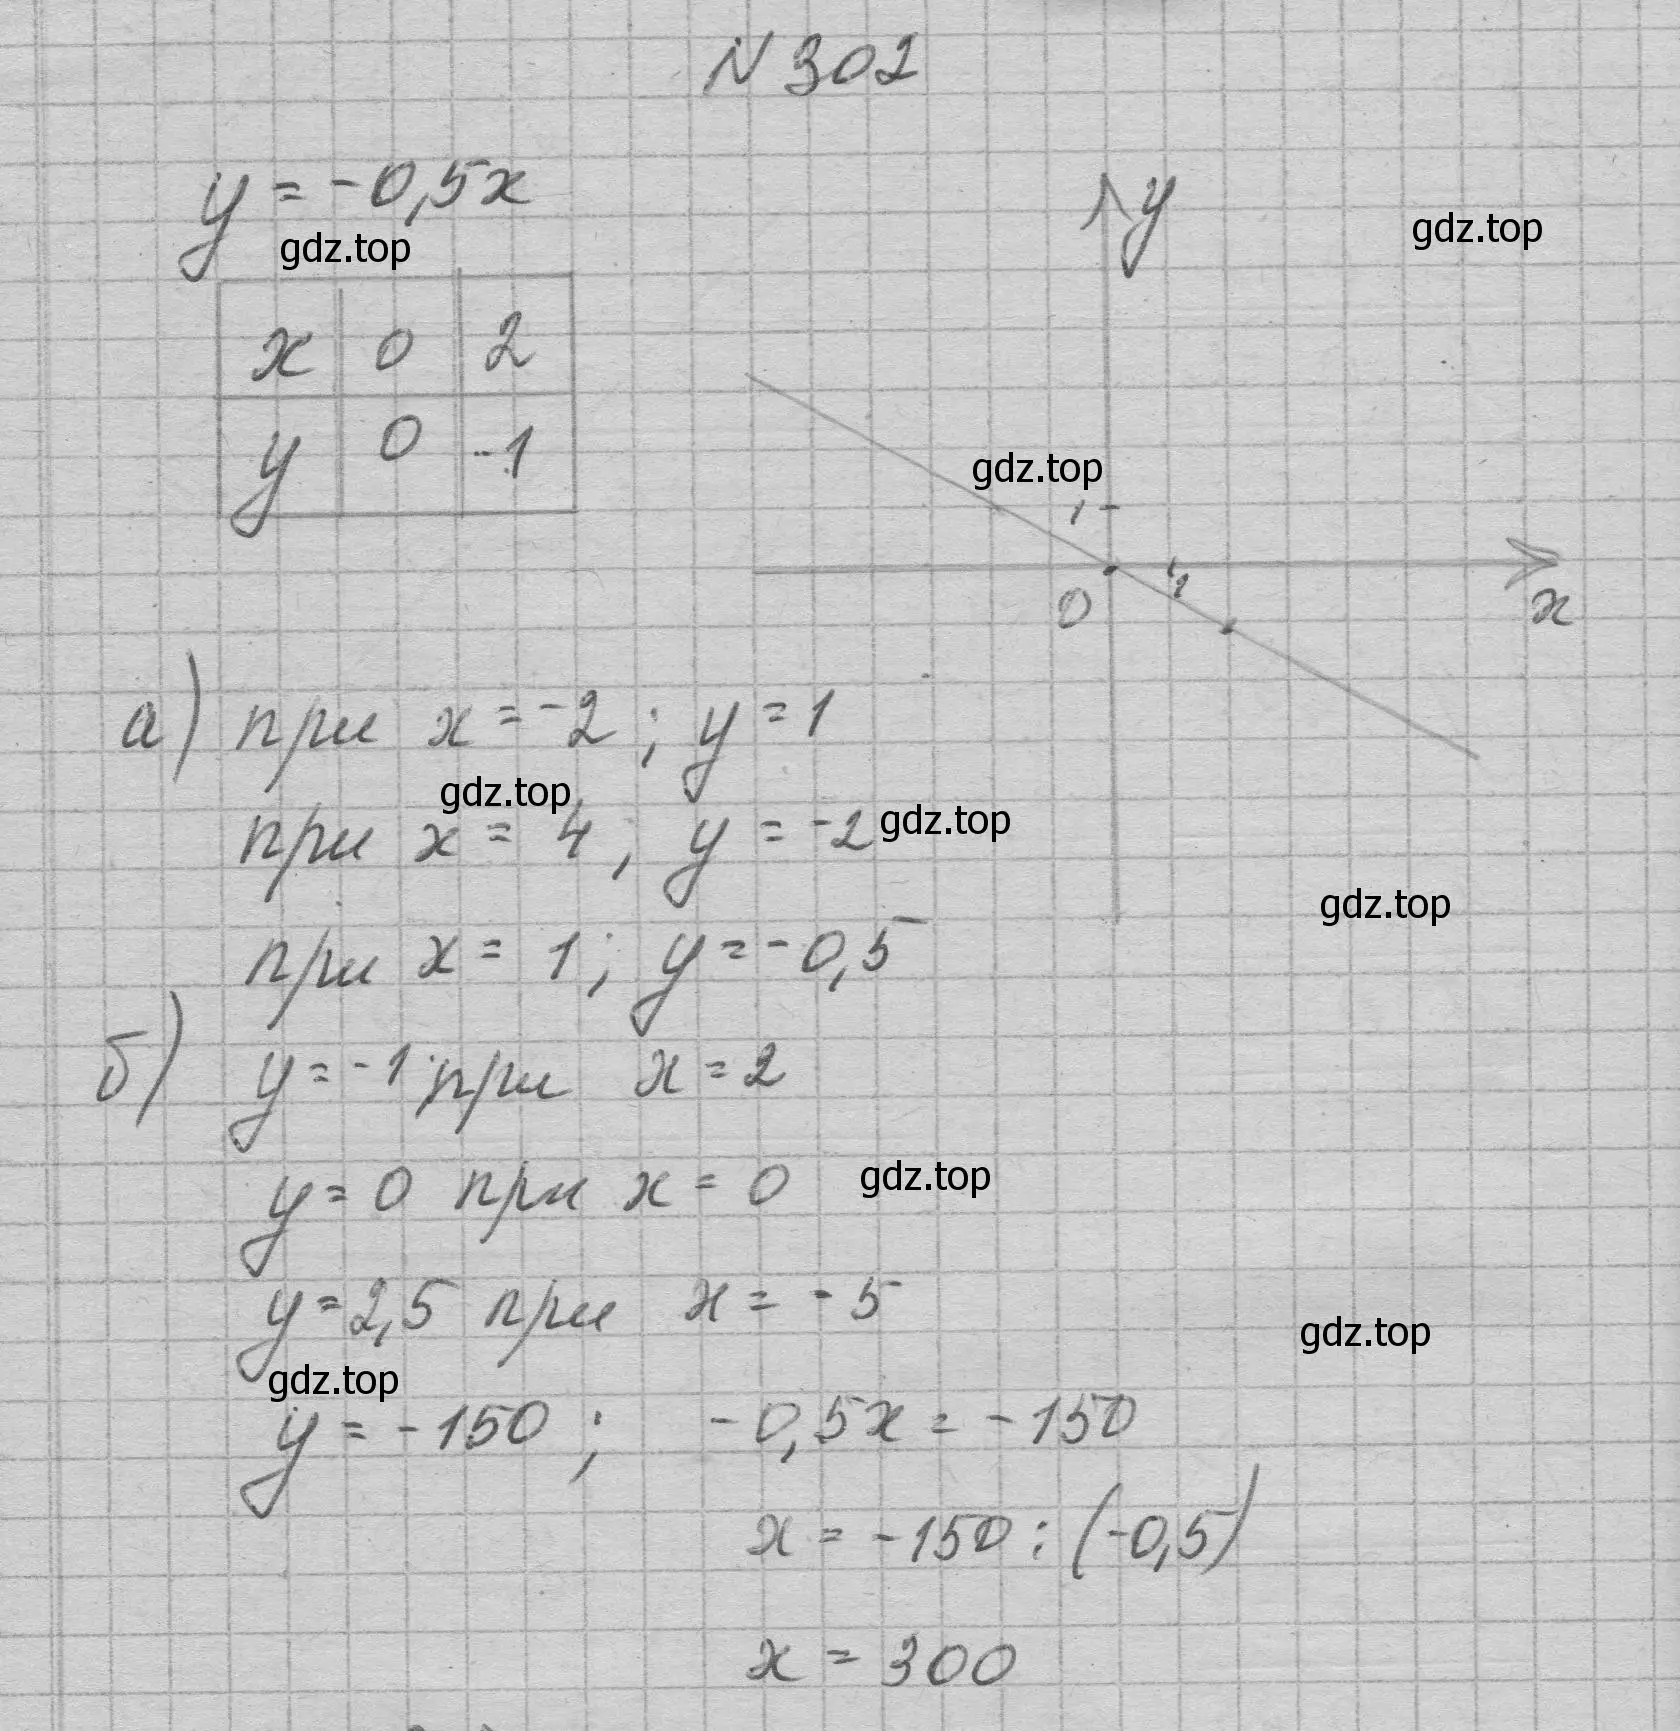 N 302
y = -0,5x
gdz.top
x 0 2
y 0 -1
y
gdz.top
gdz.top
1
0 1 x
а) при x = -2 ; y = 1
gdz.top
при x = 4 ; y = -2
gdz.top
gdz.top
при x = 1 ; y = -0,5
б) y = -1 при x = 2
y = 0 при x = 0
gdz.top
y = 2,5 при x = -5
gdz.top
gdz.top
y = -150 ; -0,5x = -150
x = -150 : (-0,5)
x = 300